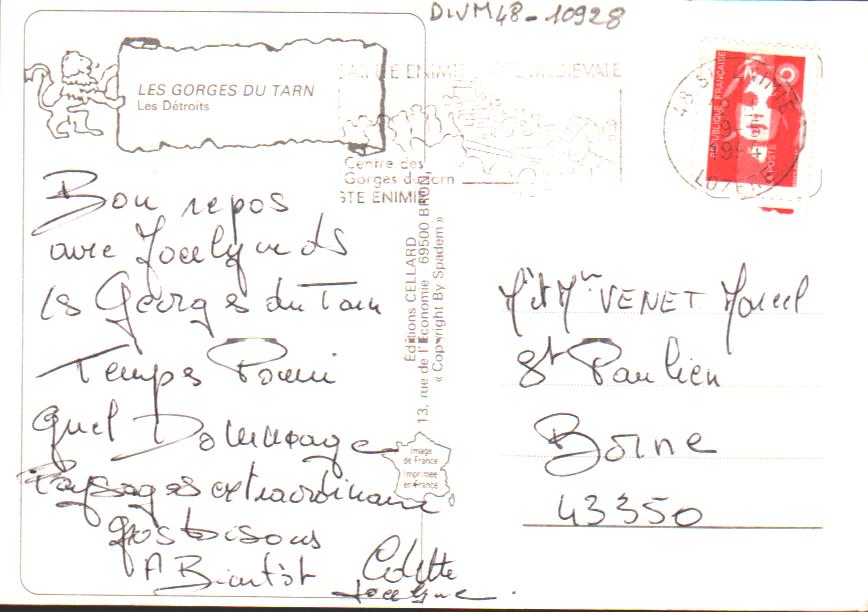 DIVM48-10928
LES GORGES DU TARN
Les Détroits
SAINTE ENIMIE CITE MEDIEVALE
Centre des
Gorges du Tarn
STE ENIMIE
48 STE ENIMIE
LOZERE
REPUBLIQUE FRANÇAISE
LA POSTE
Bon repos
avec Jocelyne ds
les Georges du Tarn
Temps Pourri
Quel Dommage
Paysages extraordinaire
Gros bisous
A Biantôt Colette
Jocelyne.
Éditions CELLARD
13, rue de l'Économie - 69500 BRON
« Copyright By Spadem »
Image
de France
Imprimée
en France
Mr et Mme VENET Marcel
St Paulien
Borne
43350